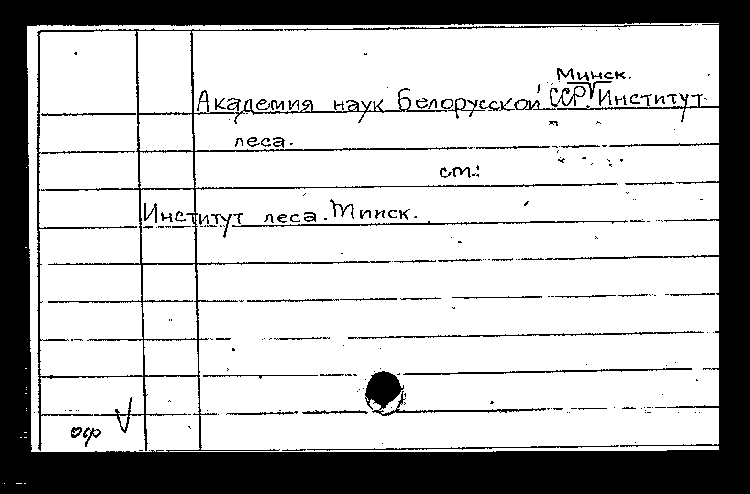 Минск.
Академия наук Белорусской ССР. Институт
леса.
см:
Институт леса. Минск.
оф V